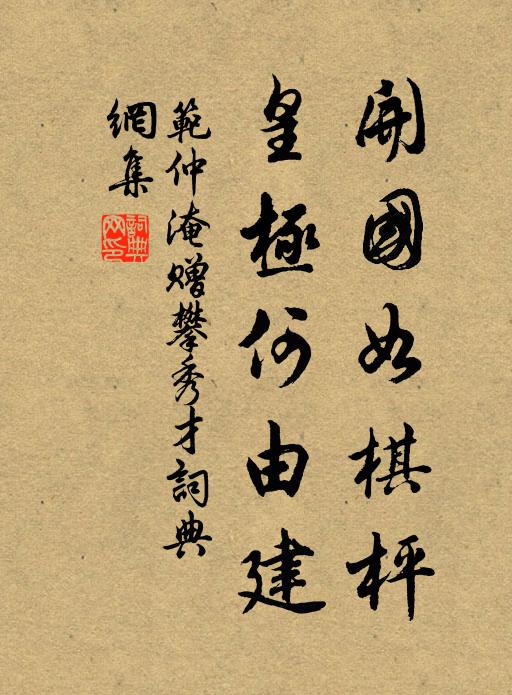 開國如棋枰
皇極何由建
範仲淹贈攀秀才詞典
網集
詞典
网印